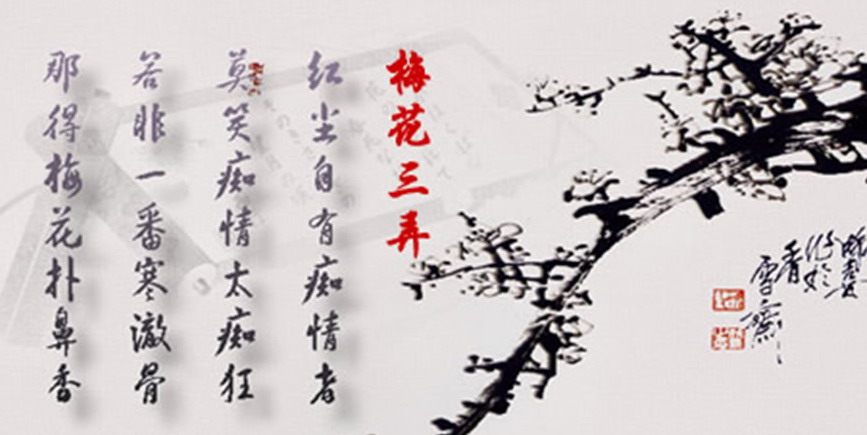 梅花三弄
红尘自有痴情者
莫笑痴情太痴狂
若非一番寒澈骨
那得梅花扑鼻香
香雪斋